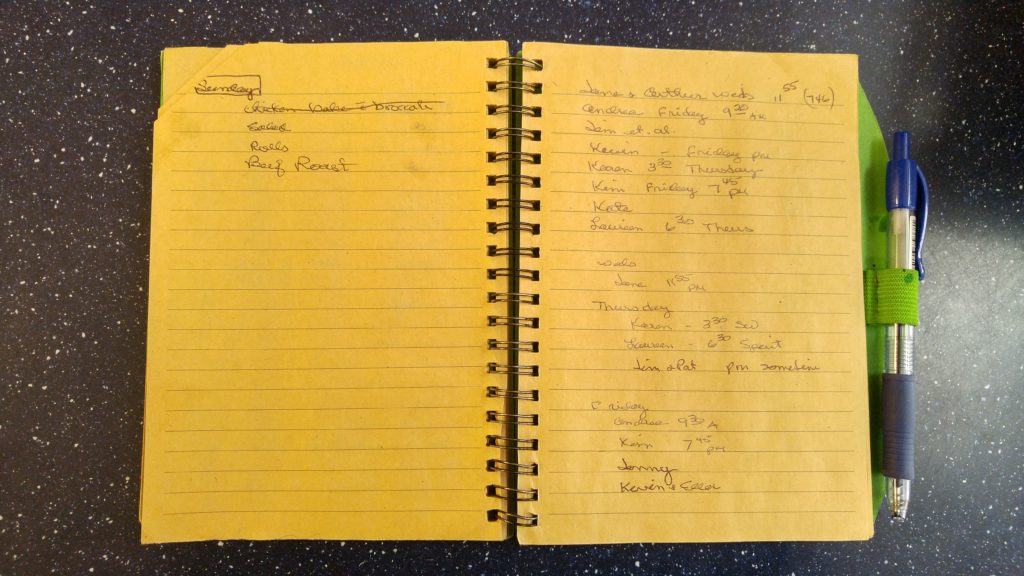 Sunday
Chicken bake & broccoli
Salad
Rolls
Beef Roast
Jane & Arthur weds 11 55 (746)
Andrea Friday 9 30 AM
Jim et. al.
Kevin - Friday PM
Karen 3 30 Thursday
Kim Friday 7 45 PM
Kate
Laureen 6 30 Thurs
weds
Jane 11 55 PM
Thursday
Karen - 3 30 SW
Laureen - 6 30 Spirit
Jim & Pat PM sometime
Friday
Andrea 9 30 A
Kim 7 45 PM
Jenny
Kevin &